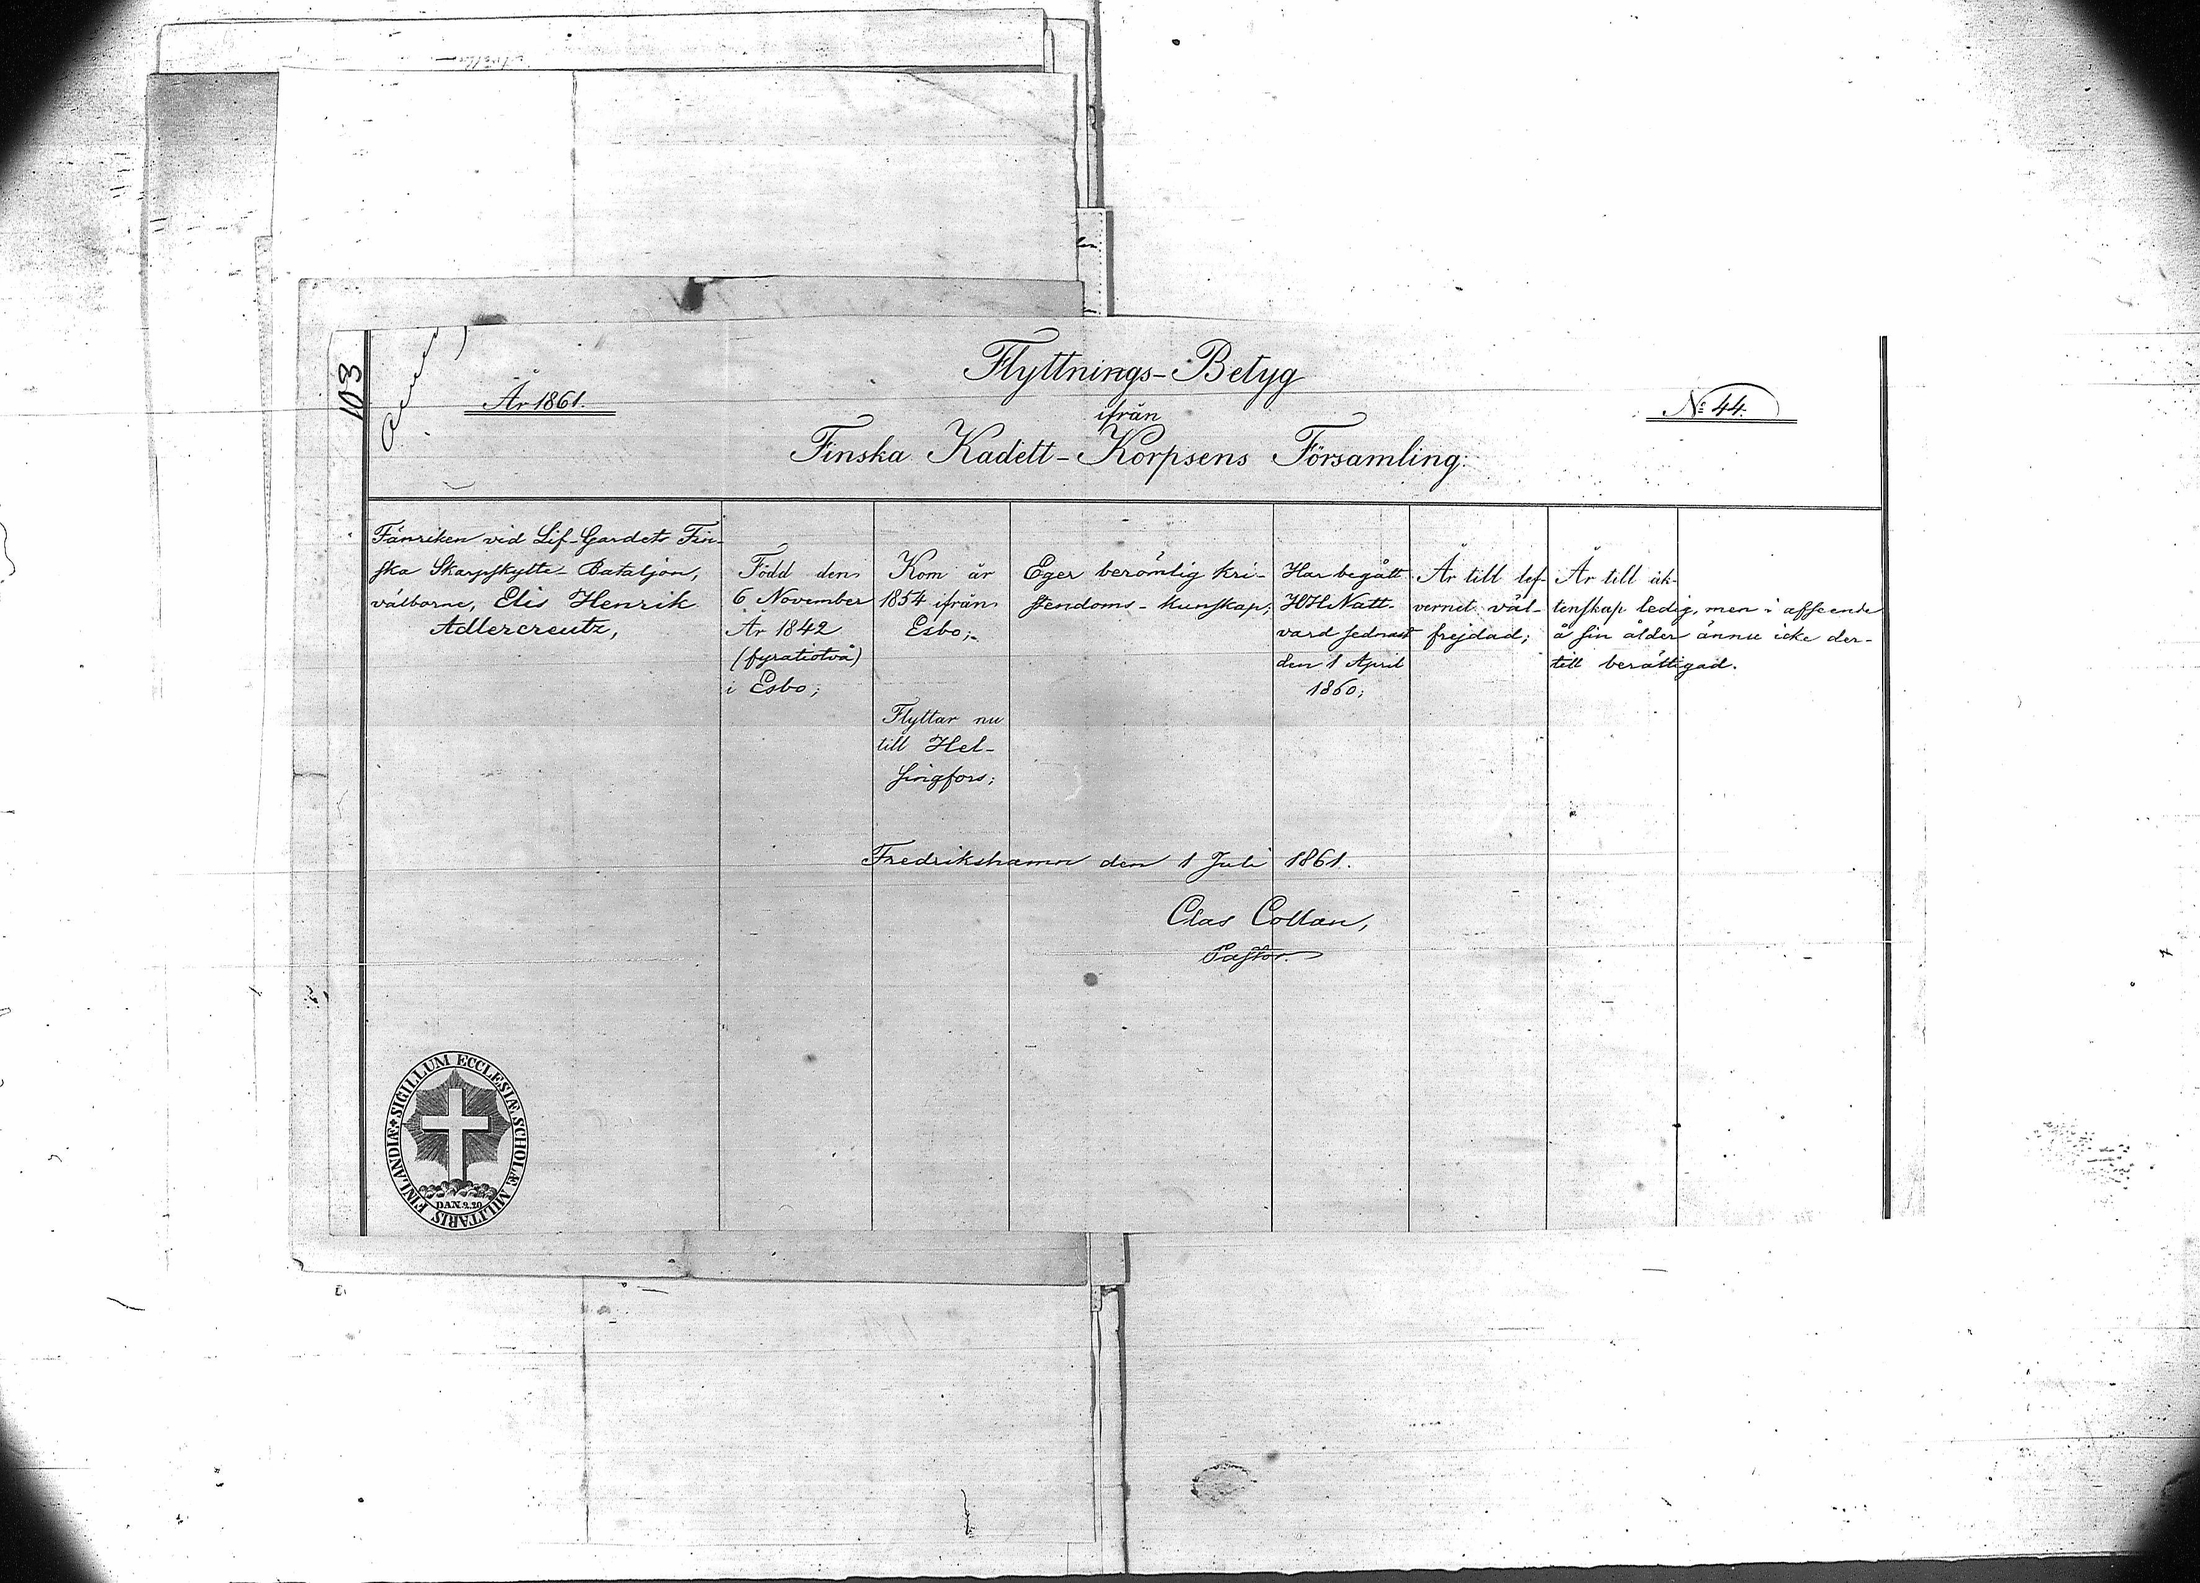 103
År 1861.
Flyttnings-Betyg
ifrån
Finska Kadett-Korpsens Församling.
No 44.
Fänriken vid Lif-Gardets Fin-
ska Skarpskytte-Bataljon,
välborne, Elis Henrik
Adlercreutz,
Född den
6 November
År 1842
(fyratiotvå)
i Esbo;
Kom år
1854 ifrån
Esbo;
Flyttar nu
till Hel-
singfors;
Eger berömlig kri-
stendoms-kunskap;
Har begått
H.H. Natt-
vard sednast
den 1 April
1860;
Är till lef-
vernet väl-
frejdad;
Är till äk-
tenskap ledig, men i afseende
å sin ålder ännu icke der-
till berättigad.
Fredrikshamn den 1 Juli 1861.
Clas Collan,
Pastor.
SIGILLUM ECCLESIÆ SCHOLÆ MILITARIS FINLANDIÆ
DAN. 2.20